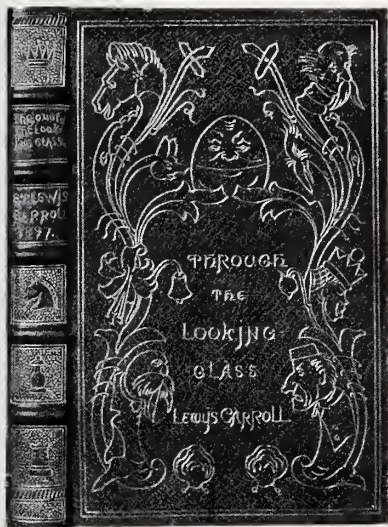 THROUGH
THE
LOOKING
GLASS
LEWYS CARROLL
THROUGH
THE LOOK
ING GLASS
BY LEWIS
CARROLL
1897.